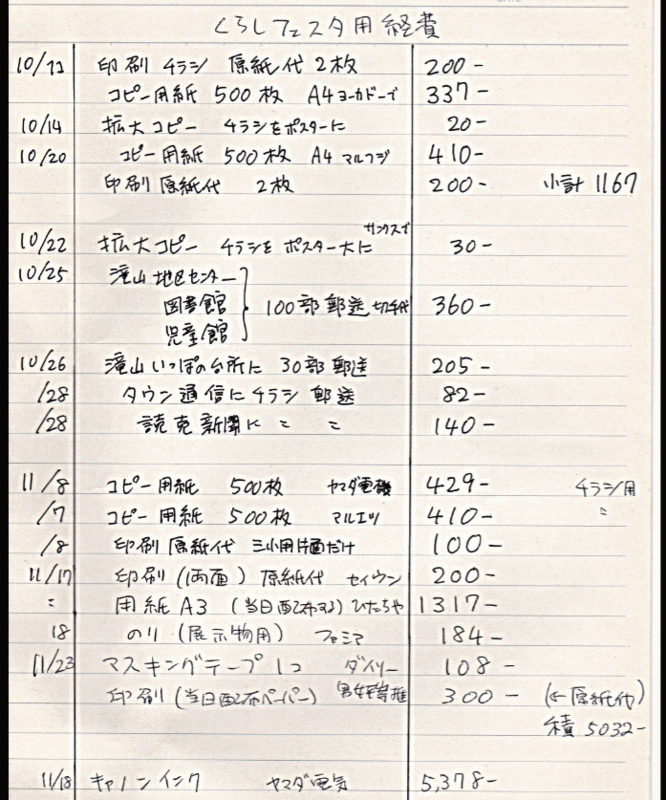 くらしフェスタ用経費
10/13 印刷 チラシ 原紙代 2枚 200-
コピー用紙 500枚 A4 ヨーカドーで 337-
10/14 拡大コピー チラシをポスターに 20-
10/20 コピー用紙 500枚 A4 マルフジ 410-
印刷原紙代 2枚 200- 小計 1167
サンクスで
10/22 拡大コピー チラシを ポスター大に 30-
10/25 滝山地区センター
図書館 100部郵送 切手代 360-
児童館
10/26 滝山いっぽの台所に 30部郵送 205-
/28 タウン通信にチラシ 郵送 82-
/28 読売新聞に 〃 〃 140-
11/8 コピー用紙 500枚 ヤマダ電機 429- チラシ用
/7 コピー用紙 500枚 マルエツ 410- 〃
/8 印刷原紙代 三小用片面だけ 100-
11/17 印刷(両面) 原紙代 セイウン 200-
〃 用紙A3 (当日配布する) ひたちや 1317-
18 のり (展示物用) 184-
11/23 マスキングテープ 1コ ダイソー 108-
印刷(当日配布ペーパー) 300- (←原紙代)
積 5032-
11/18 キャノンインク ヤマダ電気 5,378-